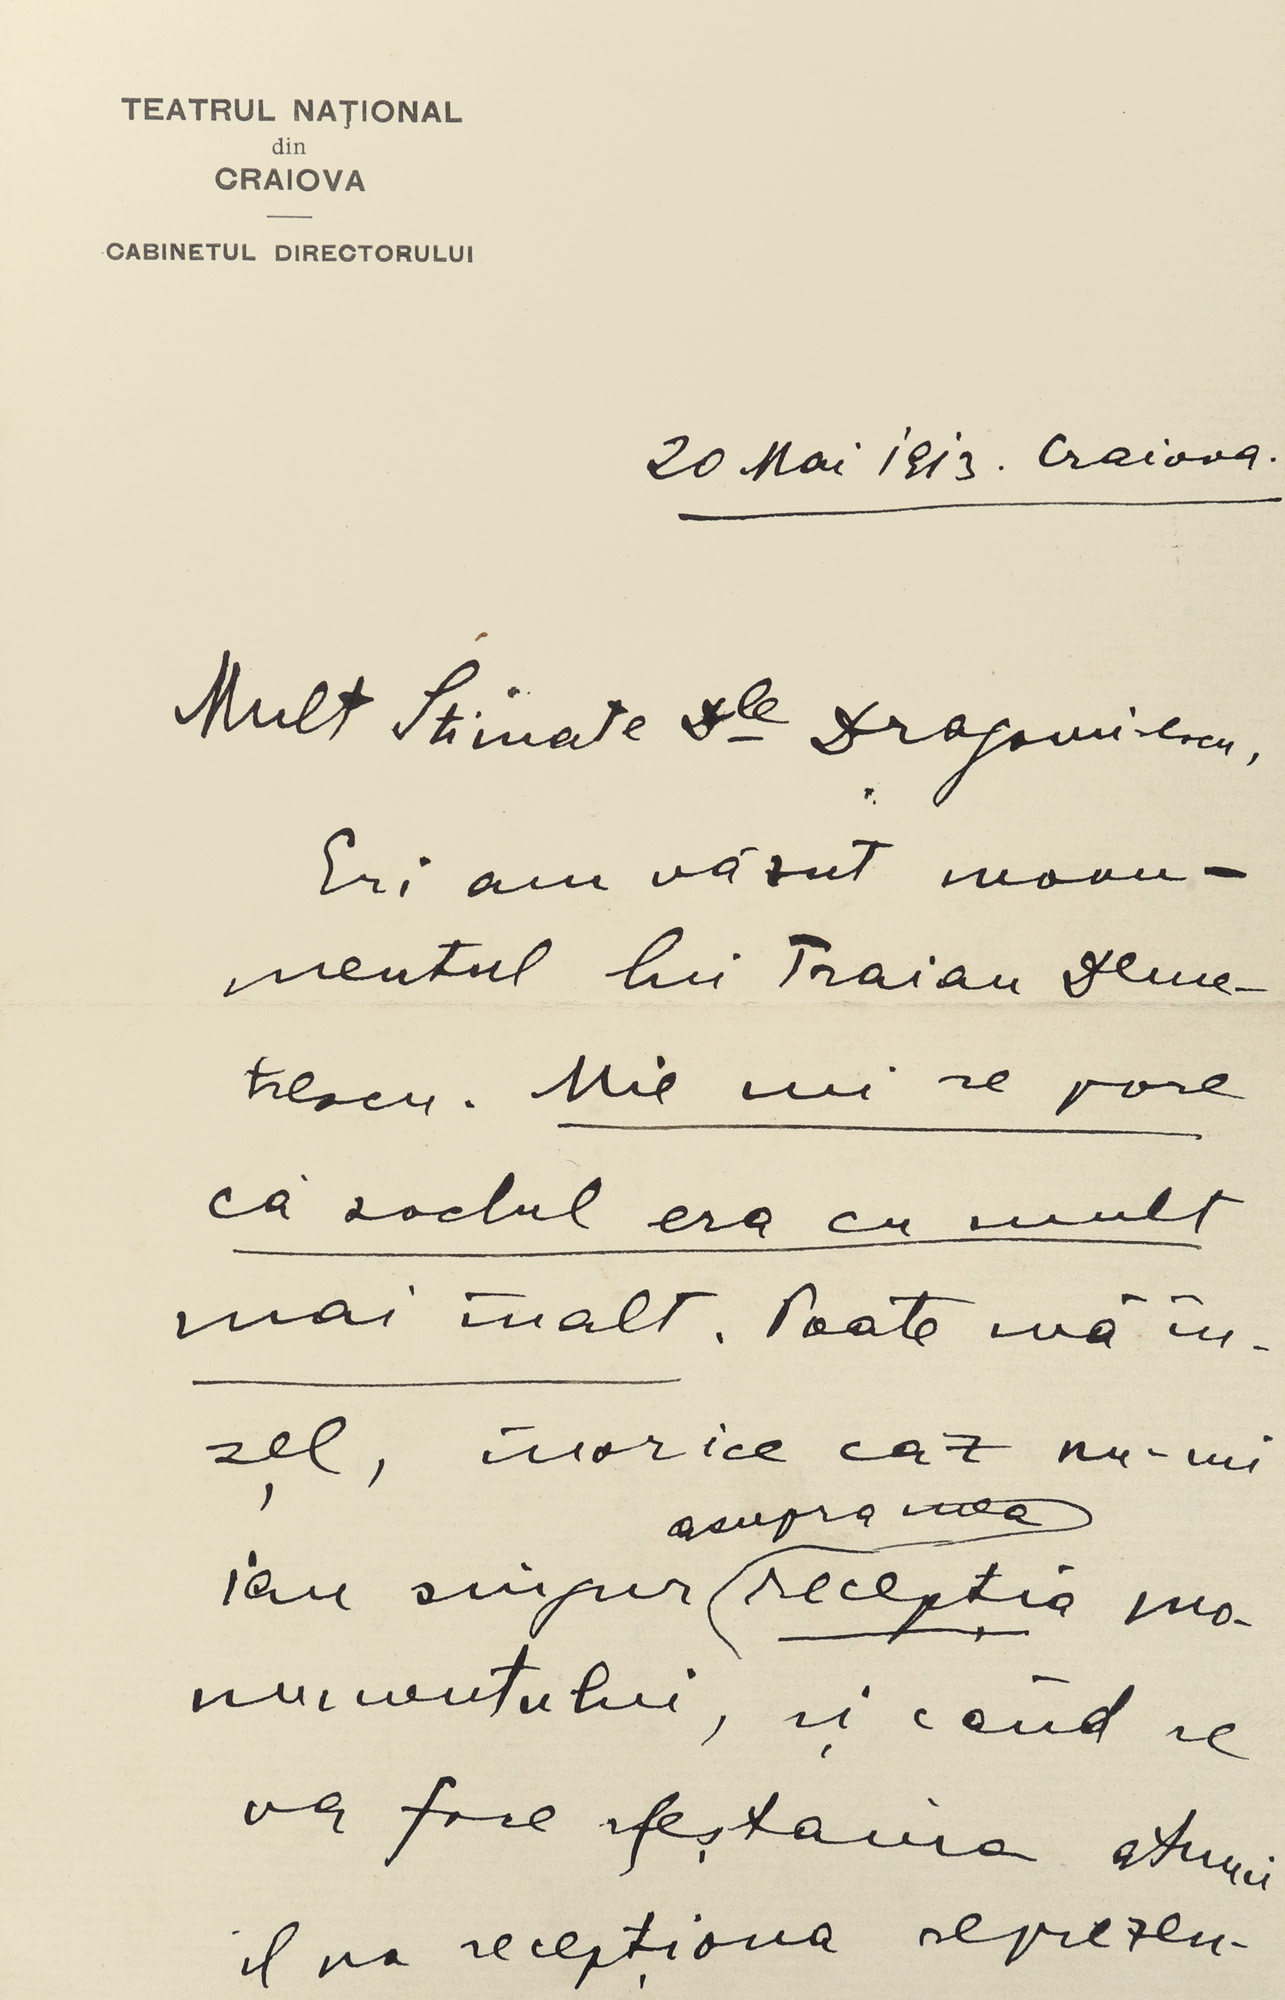 TEATRUL NAŢIONAL
din
CRAIOVA
CABINETUL DIRECTORULUI
20 Mai 1913. Craiova.
Mult Stimate Dle Dragomirescu,
Eri am văzut monu-
mentul lui Traian Deme-
trescu. Mie mi se pare
că soclul era cu mult
mai īnalt. Poate mă īn-
șel, īnorice caz nu-mi
asupra mea
iau singur recepția mo-
numentului, și cānd se
va face sfeștania atunci
il va recepționa reprezen-